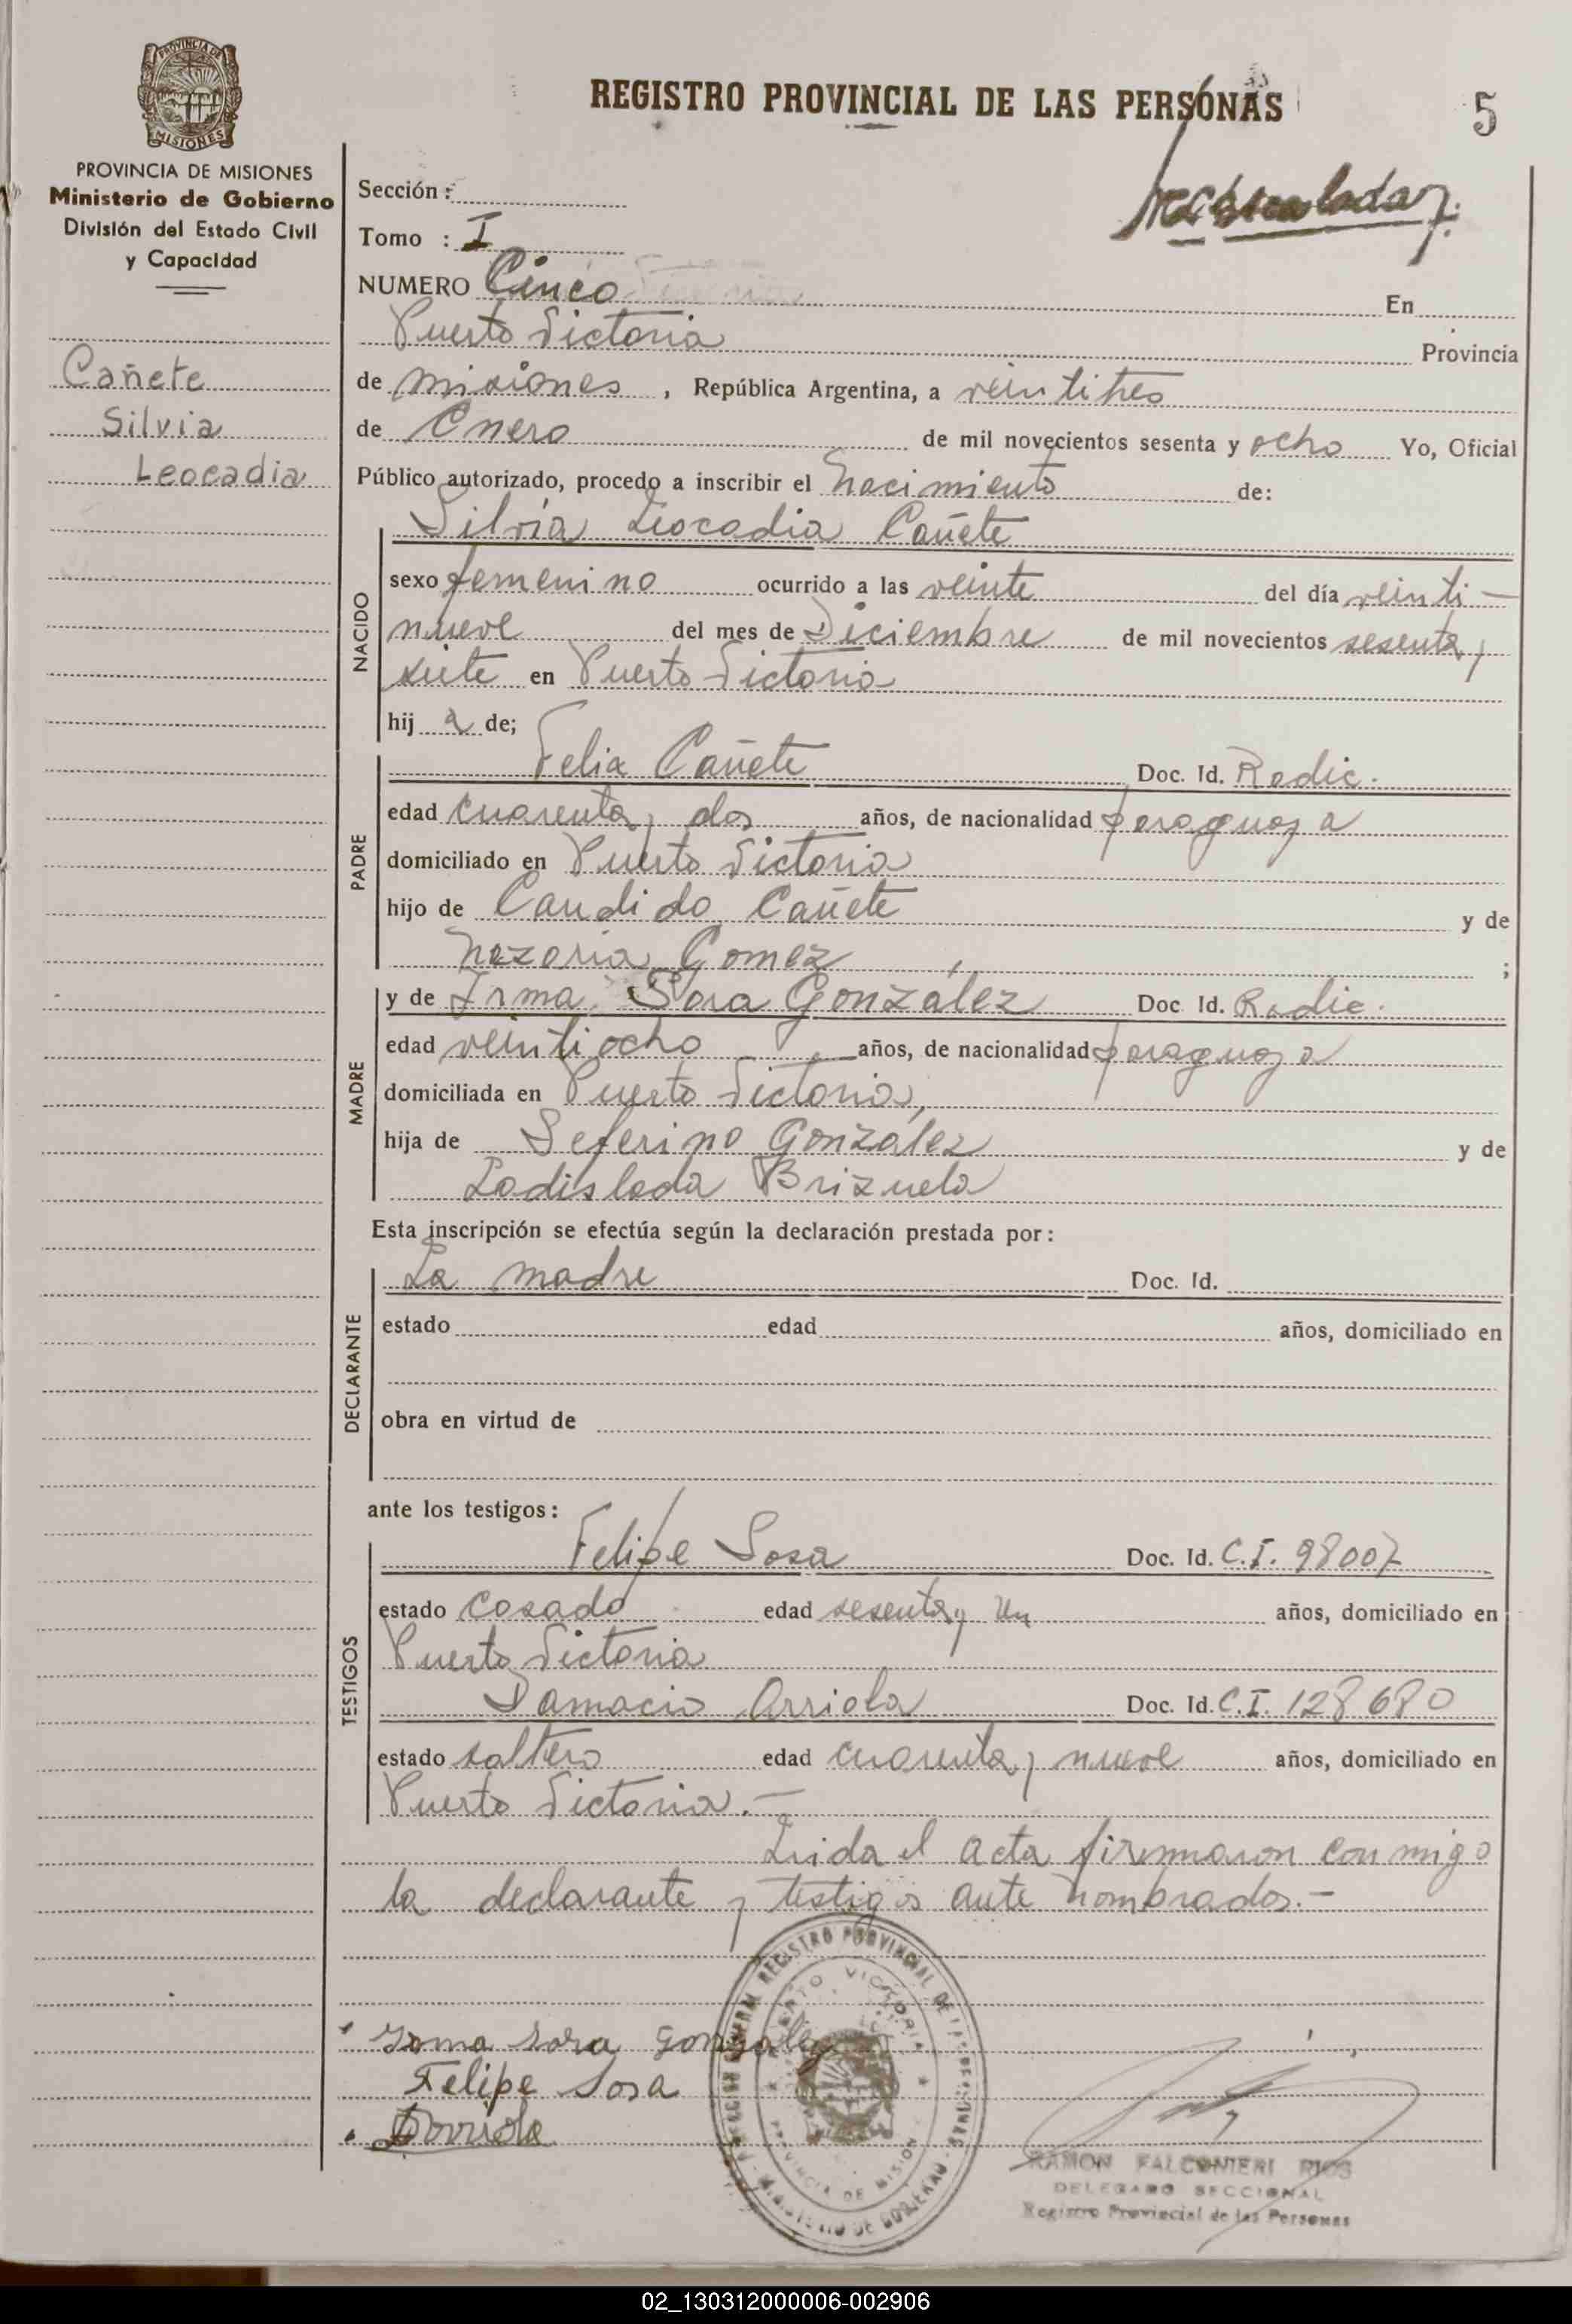 REGISTRO PROVINCIAL DE LAS PERSONAS
5
PROVINCIA DE MISIONES
PROVINCIA DE MISIONES
Ministerio de Gobierno
División del Estado Civil
y Capacidad
Cañete
Silvia
Leocadia
Sección :
Tomo : I
NUMERO Cinco En
Puerto Victoria Provincia
de Misiones , República Argentina, a veintitres
de Enero de mil novecientos sesenta y ocho Yo, Oficial
Público autorizado, procedo a inscribir el Nacimiento de:
Silvia Leocadia Cañete
NACIDO
sexo femenino ocurrido a las veinte del día veinti-
nueve del mes de Diciembre de mil novecientos sesenta y
siete en Puerto Victoria
hij a de;
PADRE
Felix Cañete Doc. Id. Radic.
edad cuarenta y dos años, de nacionalidad paraguaya
domiciliado en Puerto Victoria
hijo de Candido Cañete y de
Nazaria Gomez ;
MADRE
y de Irma Sora González Doc. Id. Radic.
edad veintiocho años, de nacionalidad paraguaya
domiciliada en Puerto Victoria,
hija de Seferino González y de
Ladislada Brizuela
Esta inscripción se efectúa según la declaración prestada por:
DECLARANTE
La madre Doc. Id.
estado edad años, domiciliado en
obra en virtud de
ante los testigos:
TESTIGOS
Felipe Sosa Doc. Id. C.I. 98007
estado casado edad sesenta y un años, domiciliado en
Puerto Victoria
Damacio Arriola Doc. Id. C.I. 128680
estado soltero edad cuarenta y nueve años, domiciliado en
Puerto Victoria.-
Leida el acta firmaron conmigo
la declarante y testigos ante nombrados.-
Irma Sora Gonzalez
Felipe Sosa
DArriola
REGISTRO PROVINCIAL DE LAS PERSONAS - MINISTERIO DE GOBIERNO
PUERTO VICTORIA
PROVINCIA DE MISIONES
RAMON FALCONIERI RIOS
DELEGADO SECCIONAL
Registro Provincial de las Personas
02_130312000006-002906